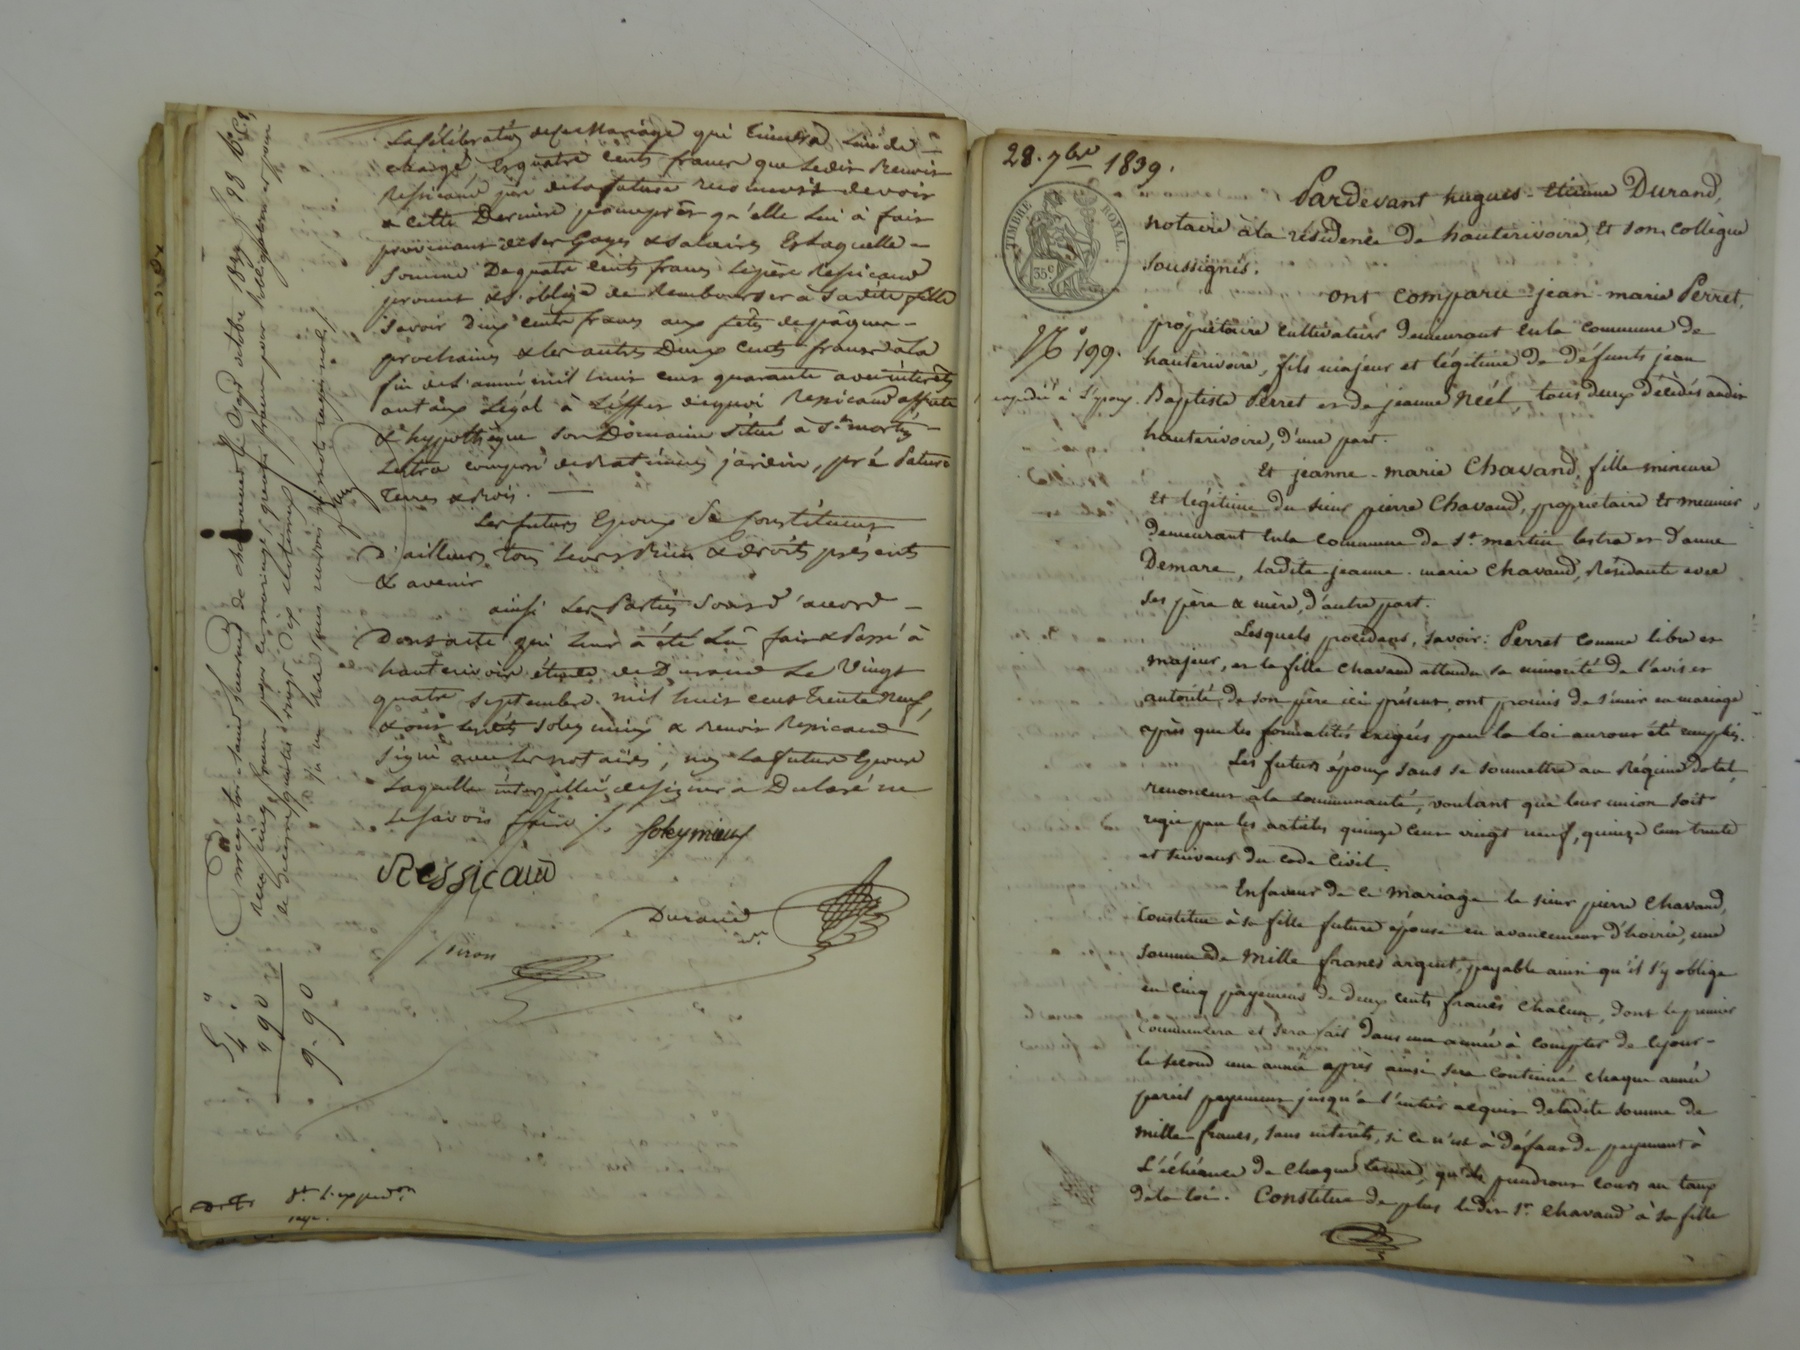 La célébration de ce Mariage qui tiendra lieu de
charge, Les quatre cents francs que Ledit Benoit
Ressicaud père de la future reconnaît devoir
à cette Dernière pour prêt qu'elle lui a fait
provenant de ses Gages & salaires Et Laquelle
somme De quatre cents francs Le père Ressicaud
promet & s'oblige de Rembourser à sadite fille
savoir deux cents francs aux fêtes de pâques
prochaines & les autres Deux cents francs à la
fin de l'année mil huit cent quarante avec intérêts
au taux Légal à L'effet de quoi Ressicaud affecte
& hypothèque son Domaine situé à St martin
Lestra composé de Batiments jardin, pré Pature
Terres & Bois.
Les futurs Epoux Se Constituent
D'ailleurs tous leurs Biens & droits présents
& avenir
ainsi Les Parties Sont d'accord
Dont acte qui leur a été Lu fait & Passé à
hauterivoire étude de Durand Le Vingt
quatre septembre mil huit cent trente neuf,
& ont lesdits Soleymieux & Benoit Ressicaud
signé avec Les notaires, non La future Epouse
Laquelle interpellée de signer a Déclaré ne
Le savoir faire /.
Soleymieux
Ressicaud
Durand
nre
5 "
4 "
" 90
9-90
28. 7bre 1839.
TIMBRE ROYAL
35c
No 199.
Pardevant hugues-Etienne Durand,
notaire à la résidence de hauterivoire, Et son collègue
soussignés.
ont comparu jean-marie Perret,
propriétaire cultivateur demeurant en la commune de
hauterivoire, fils majeur et légitime de défunts jean
Baptiste Perret et de jeanne Néel, tous deux décédés audit
hauterivoire, d'une part.
Et jeanne-marie Chavand, fille mineure
Et légitime du sieur pierre Chavand, propriétaire Et meunier
demeurant en la commune de St martin lestra et d'anne
Demare, ladite jeanne-marie Chavand, Résidante avec
ses père & mère, d'autre part.
Lesquels procédans, savoir: Perret comme libre et
majeur, et la fille Chavand attendu sa minorité de l'avis et
autorité de son père ici présent, ont promis de s'unir en mariage
après que les formalités exigées par la loi auront été remplies.
Les futurs époux sans se soumettre au Régime dotal,
renoncent à la communauté, voulant que leur union soit
régie par les articles quinze cent vingt neuf, quinze cent trente
et suivans du code civil.
En faveur de ce mariage le sieur pierre Chavand,
Constitue à sa fille future épouse en avancement d'hoirie, une
somme de Mille francs argent, payable ainsi qu'il s'y oblige
en cinq payemens de deux cents francs chacun, dont le premier
commencera et sera fait dans une année à compter de ce jour
le second une année après ainsi sera continué chaque année
pareil payement jusqu'à l'entier acquit de ladite somme de
mille francs, sans intérêts, si ce n'est à défaut de payement à
L'échéance de chaque terme, qu'ils prendront cours au taux
de la loi. Constitue de plus ledit Sr. Chavand à sa fille